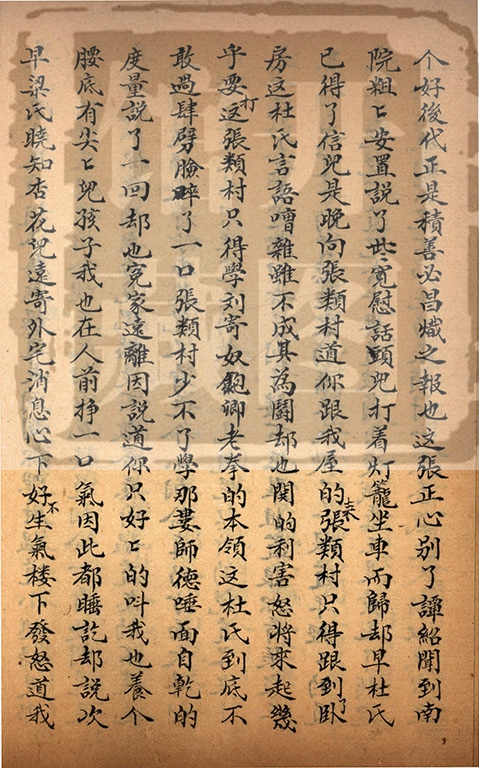 个好後代正是積善必昌熾之報也这張正心别了譚紹聞到南
院粗〻安置説了些寛慰話頭兒打着灯籠坐車而歸却早杜氏
已得了信兒是晚向張類村道你跟我屋的来張類村只得跟到了卧
房这杜氏言語嘈雜雖不成其為鬪却也閗的利害怒将來起幾
乎要打这張類村只得學刘寄奴飽卿老拳的本領这杜氏到底不
敢過肆劈臉啐了一口張類村少不了學那婁師德唾面自乾的
度量説了一回却也寃家遠離因説道你只好〻的呌我也養个
腰底有尖〻兒孩子我也在人前挣一口氣因此都睡訖却説次
早梁氏曉知杏花兒遠寄外宅消息心下好不生氣楼下發怒道我